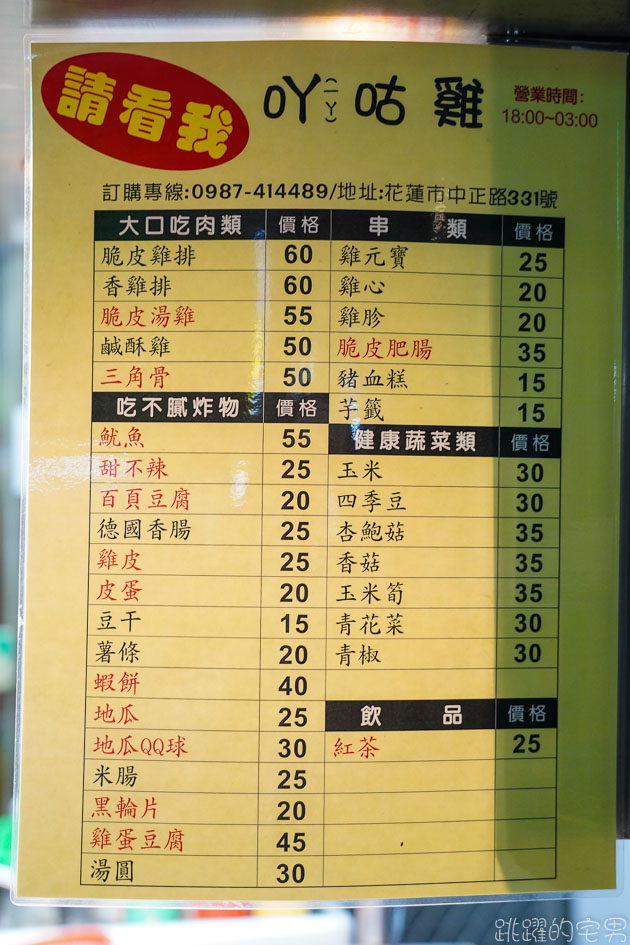 請看我
吖(ㄧㄚ)咕雞
營業時間:
18:00~03:00
訂購專線:0987-414489/地址:花蓮市中正路331號
大口吃肉類 價格
脆皮雞排 60
香雞排 60
脆皮湯雞 55
鹹酥雞 50
三角骨 50
吃不膩炸物 價格
魷魚 55
甜不辣 25
百頁豆腐 20
德國香腸 25
雞皮 25
皮蛋 20
豆干 15
薯條 20
蝦餅 40
地瓜 25
地瓜QQ球 30
米腸 25
黑輪片 20
雞蛋豆腐 45
湯圓 30
串類 價格
雞元寶 25
雞心 20
雞胗 20
脆皮肥腸 35
豬血糕 15
芋籤 15
健康蔬菜類 價格
玉米 30
四季豆 30
杏鮑菇 35
香菇 35
玉米筍 35
青花菜 30
青椒 30
飲品 價格
紅茶 25
跳躍的宅男